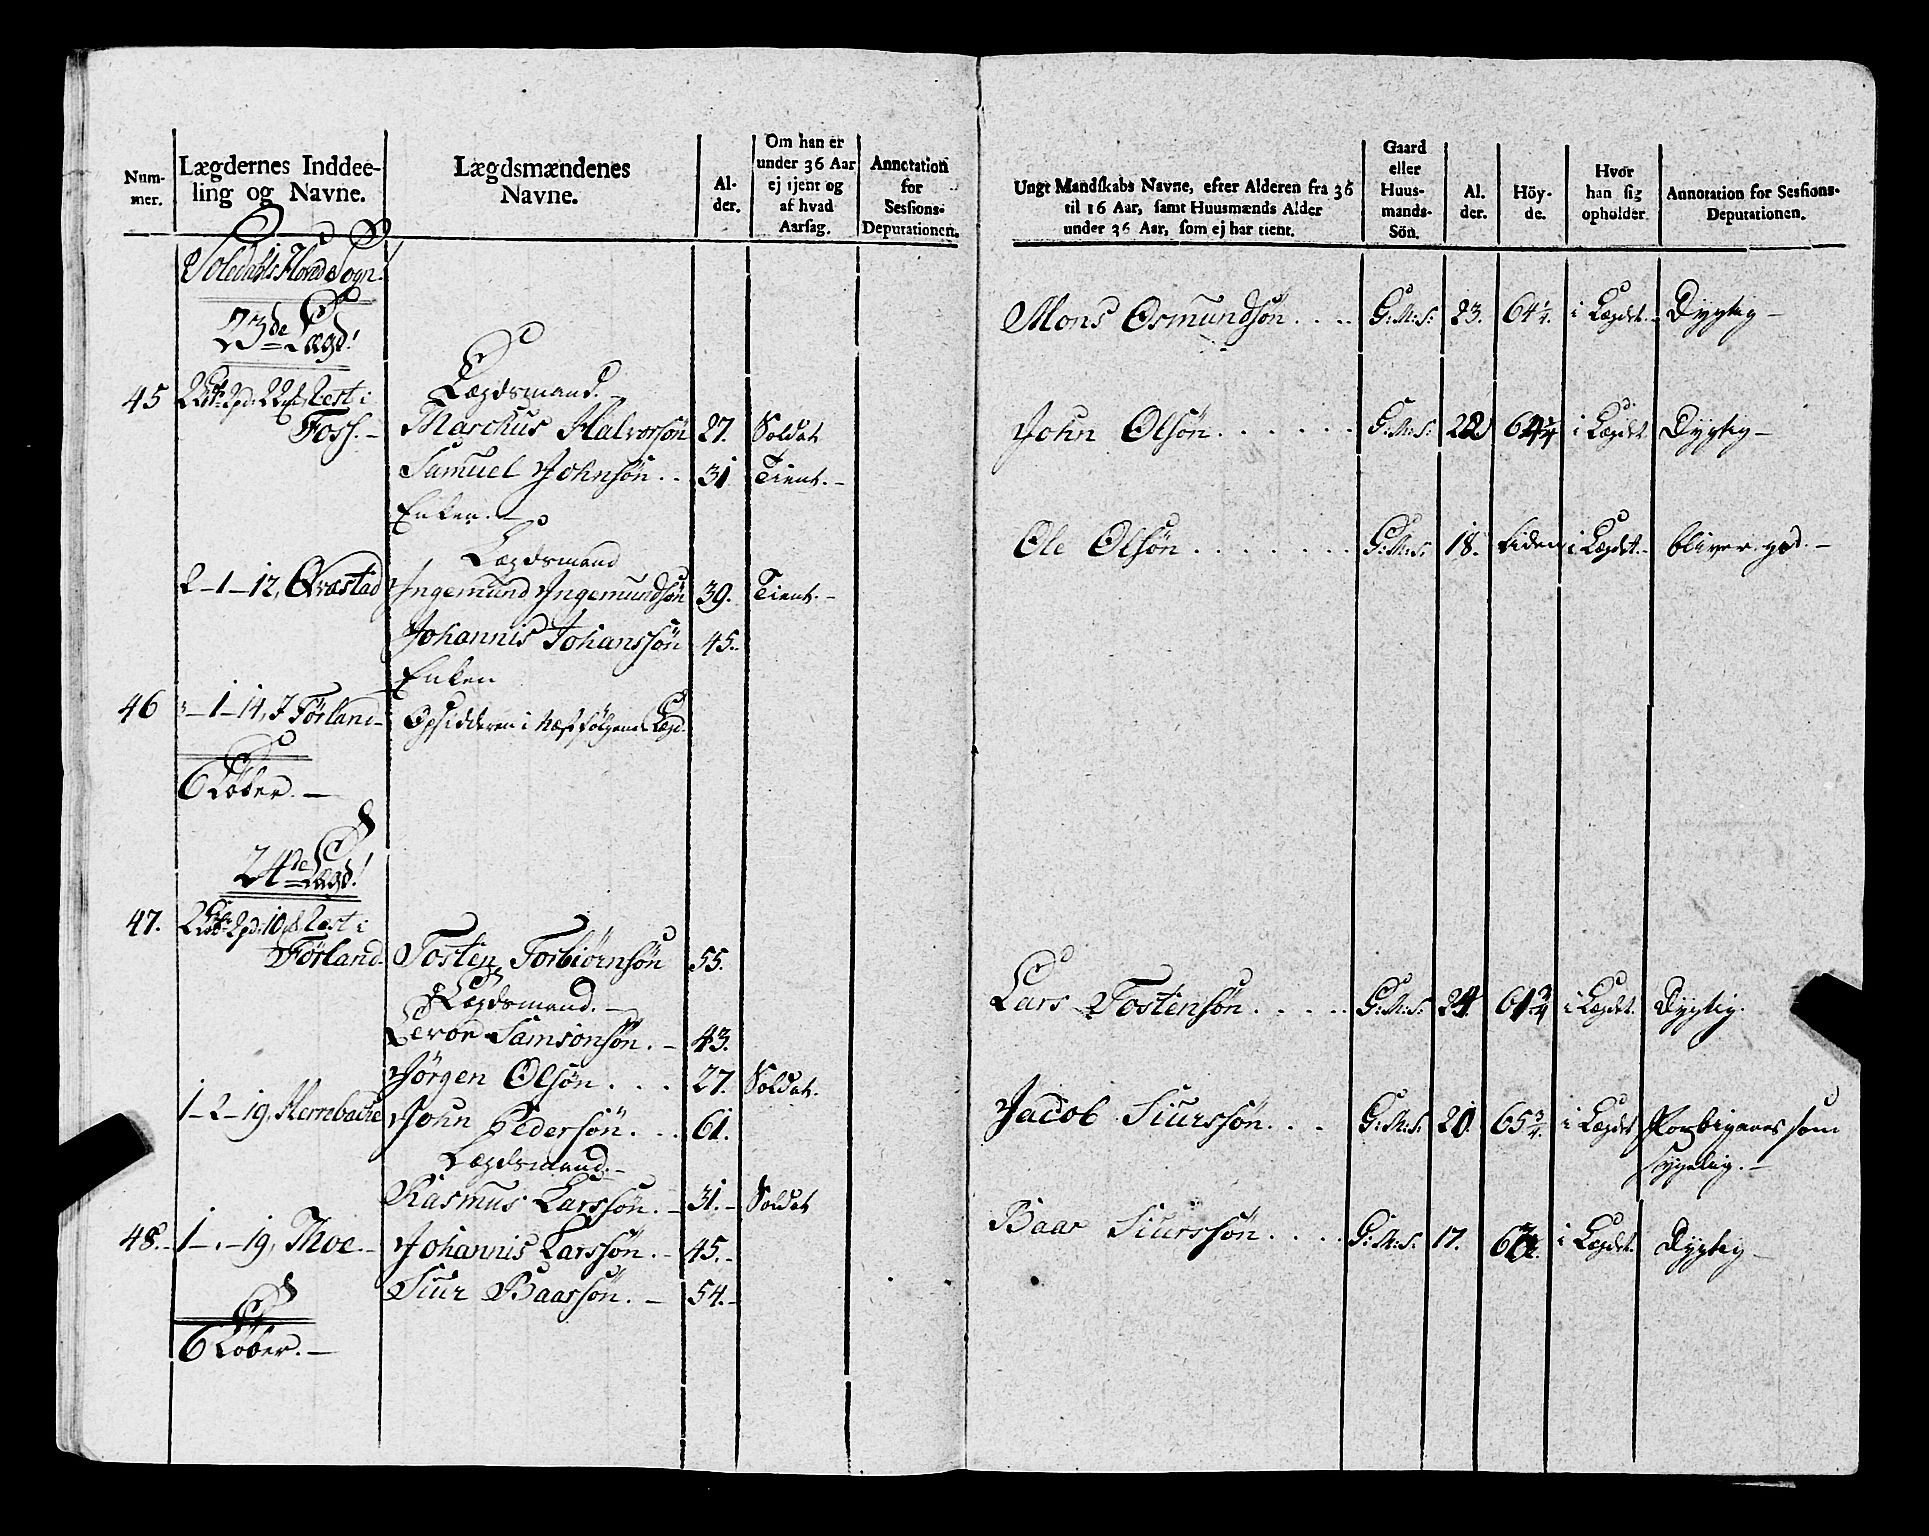 Num-
mer.
Lægdernes Inddee-
ling og Navne.
Lægdsmændenes
Navne.
Al-
der.
Om han er
under 36 Aar
ej tjent og
af hvad
Aarsag.
Annotation
for
Sessions-
Deputationen.
Sogn.
23de Lægd!
45
Lægdsmand.
Foss.- Marckus Halvorsön 27. Soldat
Samuel Johnsön . . 31 Tient.-
Enken.-
Lægdsmand
2-1-12, Qvæstad Ingemund Ingemundsön 39. Tient.-
Johannis Johanssön 45.
Enken
46 -1-14, I Förland- Opsidderen i næstfölgende Lægd.
6 Lober.-
24de Lægd!
47.
Förland. Tosten Torbiörnsön 55.
Lægdsmand.-
Samsonsön.- 43.
Jörgen Olsön . . . 27. Soldat.
1-2-19, John Pedersön . . . 61.
Lægdsmand.-
Rasmus Larssön.- 31.- Soldat
48.- 1-.-19, Thoe.- Johannis Larssön.- 45.-
Siur Baarsön.- 54.-
6 Lober.-
Ungt Mandskabs Navne, efter Alderen fra 36
til 16 Aar, samt Huusmænds Alder
under 36 Aar, som ej har tient.
Gaard
eller
Huus-
mands-
Sön.
Al-
der.
Höy-
de.
Hvor
han sig
opholder.
Annotation for Sessions-
Deputationen.
Mons Osmundsön . . . . G:M:S: 23. 64 1/4. i Lægdet.- Dygtig-
John Olsön . . . . . . . G:M:S: 22 i Lægdet Dygtig-
Ole Olsön . . . . . . . . G:M:S: 18. liden i Lægdet.- bliver god.-
Lars Tostensön . . . . . G:M:S: 24. 61 3/4 i Lægdet. Dygtig.
Jacob Siurssön . . . G:M:S: 20. 65 3/4. i Lægdet Forbigaaes som
sygelig.-
Baar Siurssön . . . . G:M:S: 17. i Lægdet. Dygtig-